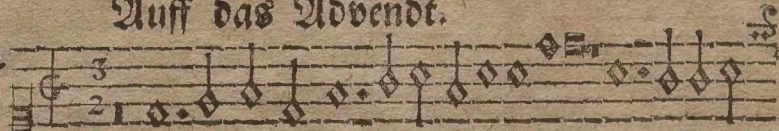 Auff das Advendt.
3
2